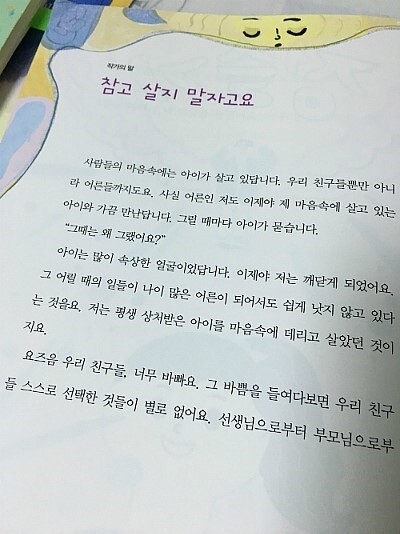 작가의 말
참고 살지 말자고요
사람들의 마음속에는 아이가 살고 있답니다. 우리 친구들뿐만 아니
라 어른들까지도요. 사실 어른인 저도 이제야 제 마음속에 살고 있는
아이와 가끔 만난답니다. 그럴 때마다 아이가 묻습니다.
"그때는 왜 그랬어요?"
아이는 많이 속상한 얼굴이었답니다. 이제야 저는 깨닫게 되었어요.
그 어릴 때의 일들이 나이 많은 어른이 되어서도 쉽게 낫지 않고 있다
는 것을요. 저는 평생 상처받은 아이를 마음속에 데리고 살았던 것이
지요.
요즈음 우리 친구들, 너무 바빠요. 그 바쁨을 들여다보면 우리 친구
들 스스로 선택한 것들이 별로 없어요. 선생님으로부터 부모님으로부